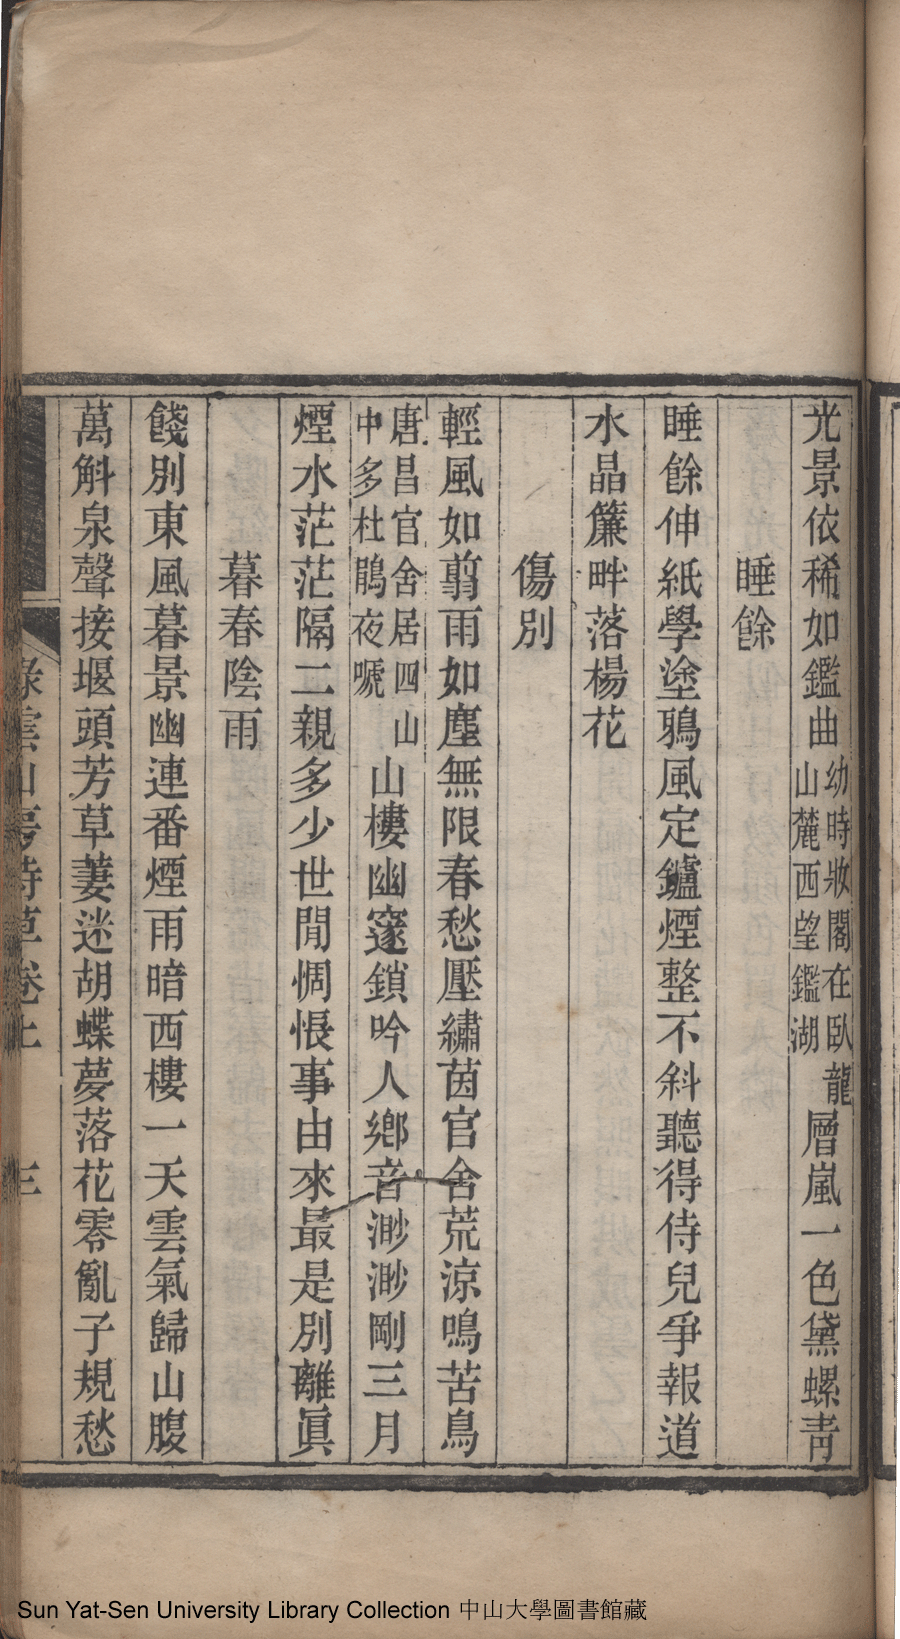 光景依稀如鑑曲幼時妝閣在臥龍山麓西望鑑湖層嵐一色黛螺青
睡餘
睡餘伸紙學塗鴉風定鑪煙整不斜聽得侍兒爭報道
水晶簾畔落楊花
傷別
輕風如翦雨如塵無限春愁壓繡茵官舍荒涼鳴苦鳥
唐昌官舍居四山中多杜鵑夜嗁山樓幽窱鎖吟人鄉音渺渺剛三月
煙水茫茫隔二親多少世閒惆悵事由來最是別離眞
暮春陰雨
餞別東風暮景幽連番煙雨暗西樓一天雲氣歸山腹
萬斛泉聲接堰頭芳草萋迷胡蝶夢落花零亂子規愁
綠雲山房詩草卷上 三
Sun Yat-Sen University Library Collection 中山大學圖書館藏